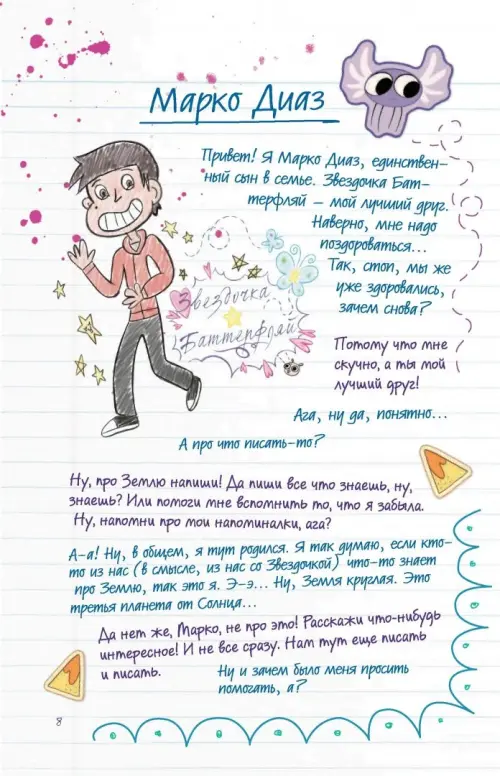 Марко Диаз
Привет! Я Марко Диаз, единствен-
ный сын в семье. Звездочка Бат-
терфляй – мой лучший друг.
Наверно, мне надо
поздороваться...
Так, стоп, мы же
уже здоровались,
зачем снова?
Звездочка
Баттерфляй
Потому что мне
скучно, а ты мой
лучший друг!
Ага, ну да, понятно...
А про что писать-то?
Ну, про Землю напиши! Да пиши все что знаешь, ну,
знаешь? Или помоги мне вспомнить то, что я забыла.
Ну, напомни про мои напоминалки, ага?
А-а! Ну, в общем, я тут родился. Я так думаю, если кто-
то из нас (в смысле, из нас со Звездочкой) что-то знает
про Землю, так это я. Э-э... Ну, Земля круглая. Это
третья планета от Солнца...
Да нет же, Марко, не про это! Расскажи что-нибудь
интересное! И не все сразу. Нам тут еще писать
и писать.
Ну и зачем было меня просить
помогать, а?
8